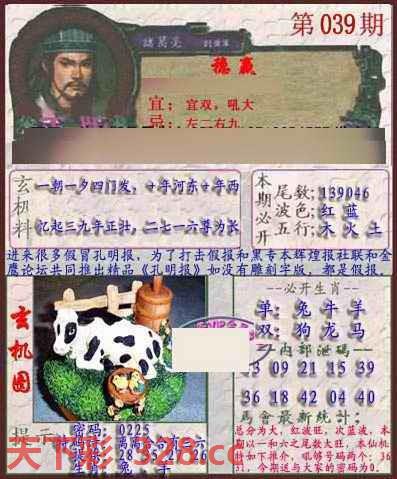 第039期
諸葛亮
稳赢
宜:宜双,吼大
忌:左二右九
玄机料
一朝一夕四门发,十年河东十年西
忆起三九年正壮,二七一六尊为长
本期必开
尾数:139046
波色:红 蓝
五行:木 火 土
进来很多假冒孔明报,为了打击假报和黑专本辉煌报社联和金
鹰论坛共同推出精品《孔明报》如没有雕刻字版,都是假报.
玄机图
必开生肖
单:兔 牛 羊
双:狗 龙 马
内部泄码
33 09 21 15 39
36 18 42 04 40
馬會最新統計:
总分为大,红波旺,次蓝波,本
期以一和六之尾数大旺,本仙机
转如下推介,吼够号码两个:36
31,今期送与大家的密码为0.
提示
密码:0225
特码
离离合合有二六
28 35 52,27,26
生肖:兔,牛
天下彩-328.cc